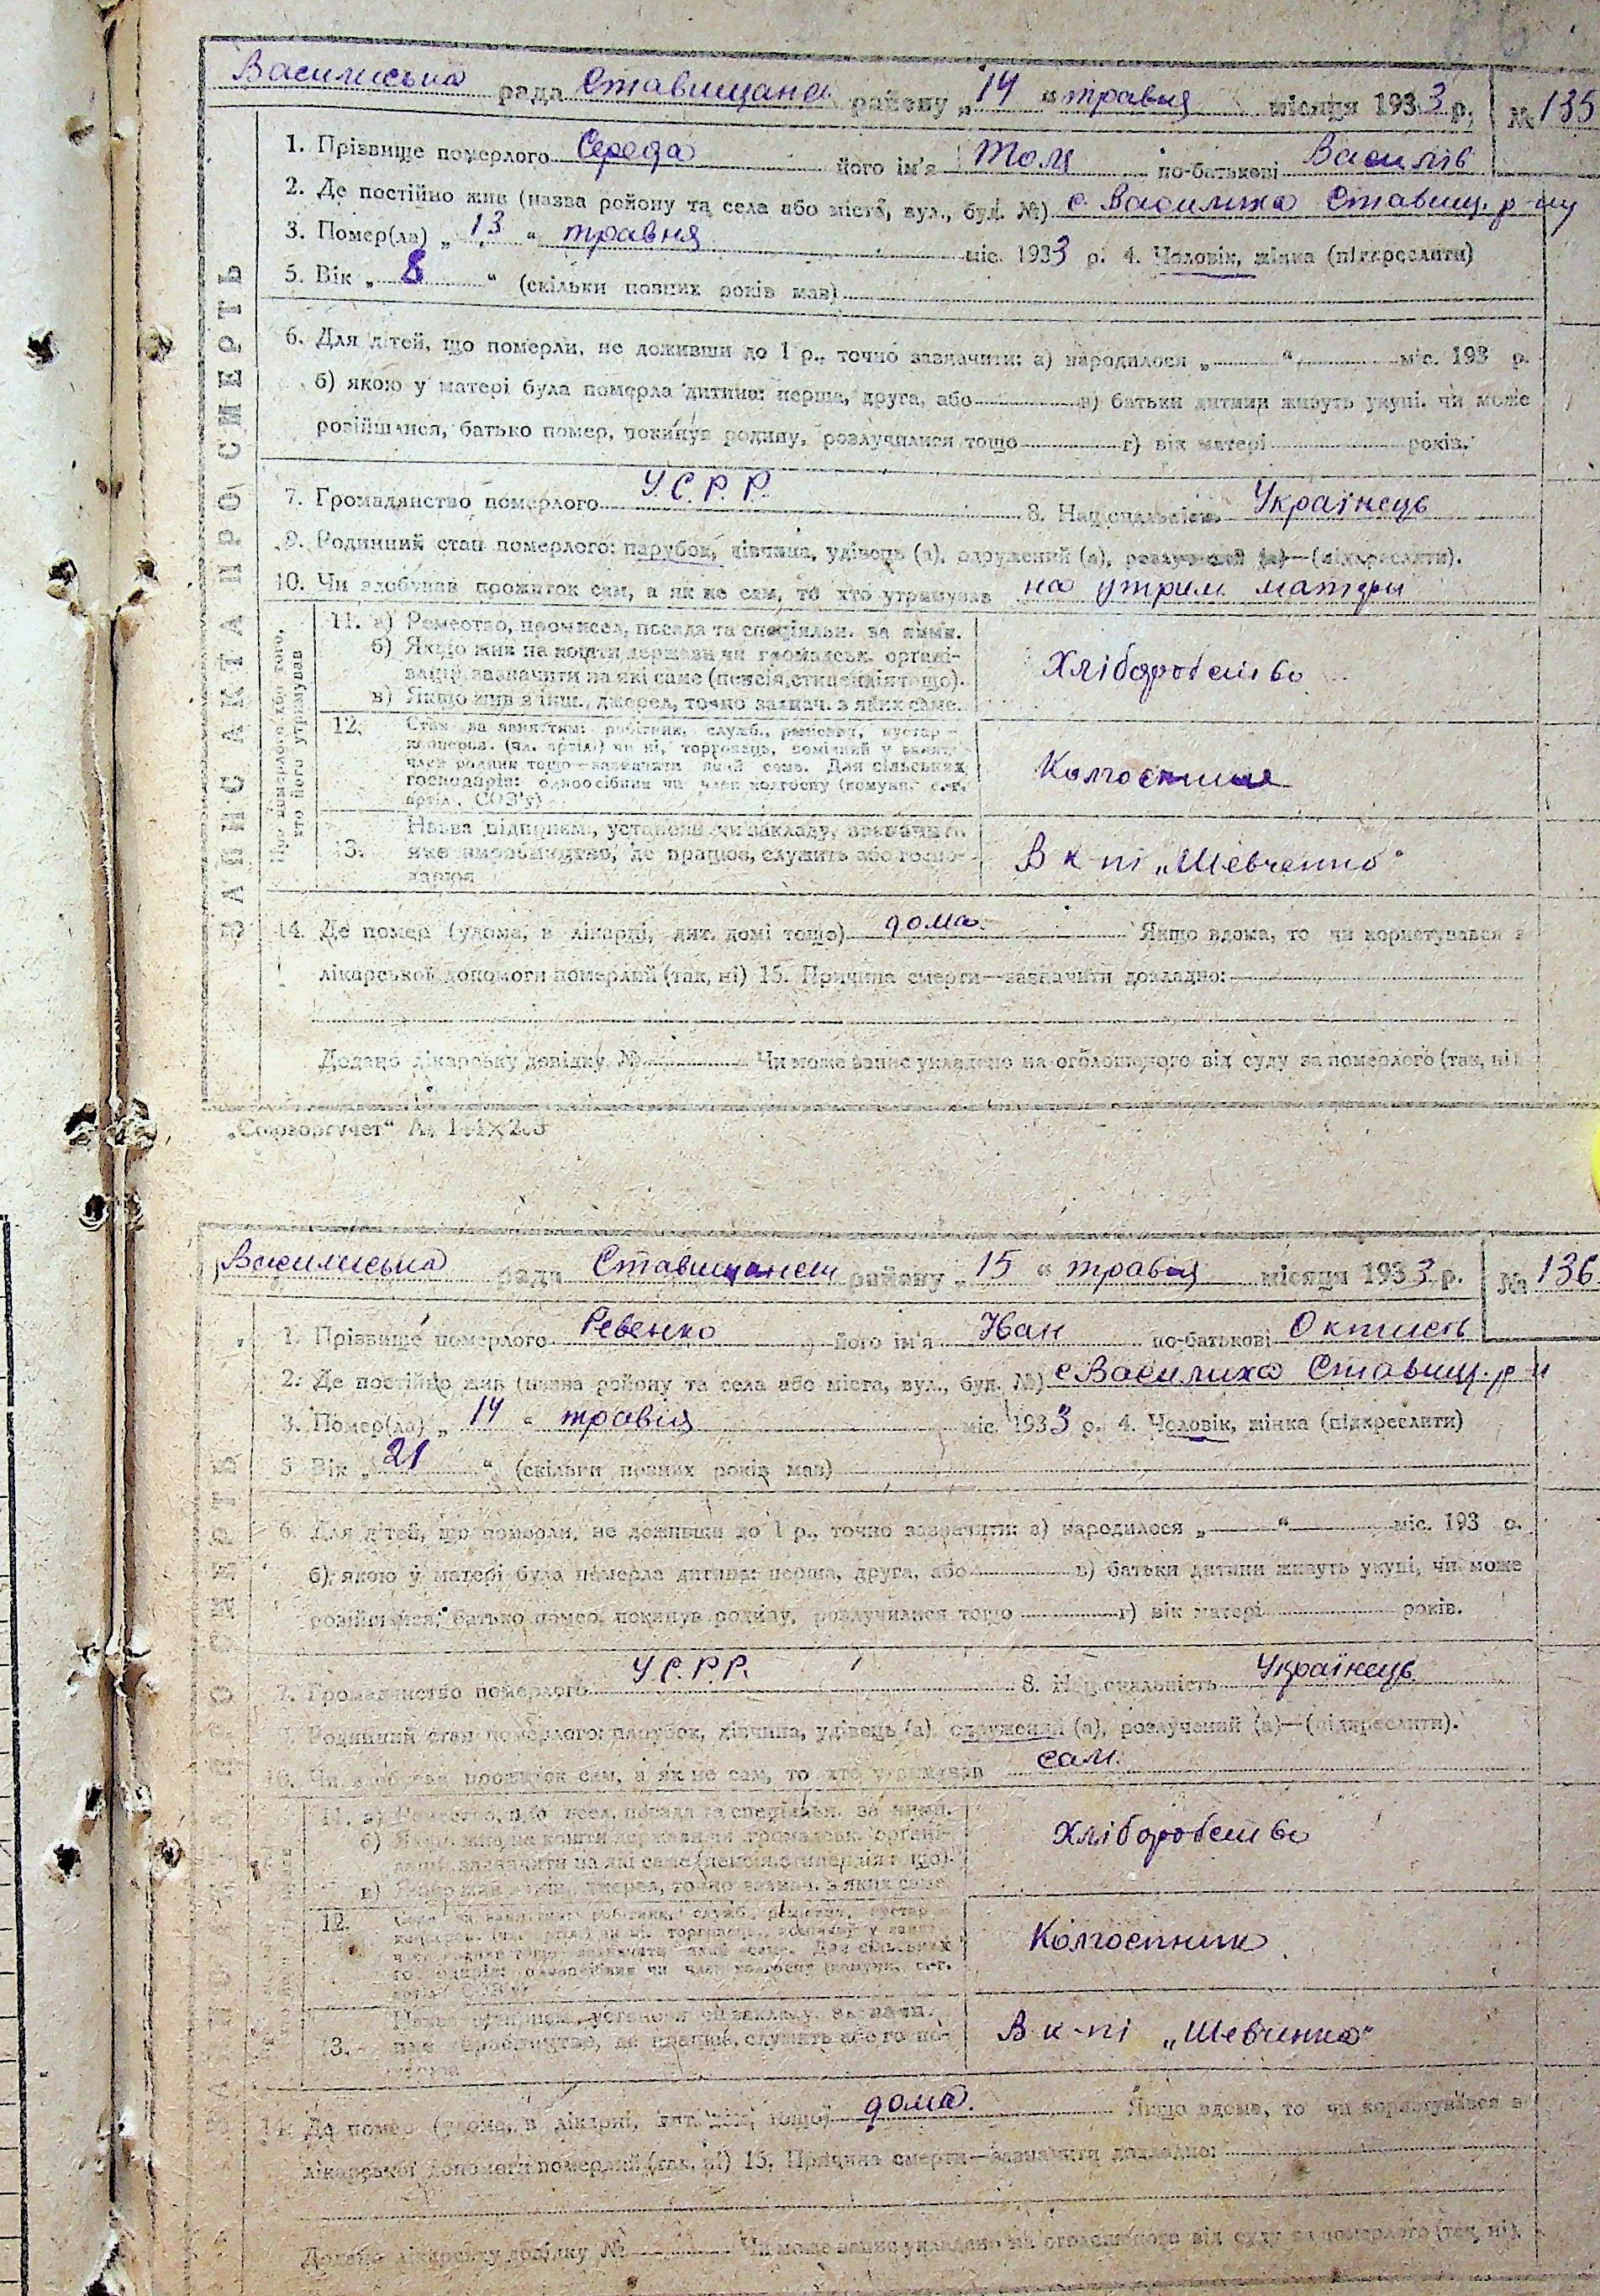 Василиська рада Ставищанс району „14 “ травня місяця 1933 р. № 135
ЗАПИС АКТА ПРО СМЕРТЬ
1. Прізвище померлого Середа його ім'я по-батькові Василів
2. Де постійно жив (назва району та села або міста, вул., буд. №) с. Василиха Ставищ. р-ну
3. Помер(ла) „ 13 “ травня міс. 1933 р. 4. Чоловік, жінка (підкреслити)
5. Вік „ 8 “ (скільки повних років мав)
6. Для дітей, що померли, не доживши до 1 р., точно зазначити: а) народилося „ “ міс. 193 р.
б) якою у матері була померла дитина: перша, друга, або в) батьки дитини живуть укупі, чи може
розійшлися, батько помер, покинув родину, розлучилися тощо г) вік матері років.
7. Громадянство померлого У.С.Р.Р. 8. Національність Українець
9. Родинний стан померлого: парубок, дівчина, удівець (а), одружений (а), розлучений (а)—(підкреслити).
10. Чи здобував прожиток сам, а як не сам, то хто утримував на утрим матери
Про померлого або того, хто його утримував
11. а) Ремество, промисел, посада та спеціяльн. за ними.
б) Якщо жив на кошти держави чи громадськ. органі-
зацій, зазначити на які саме (пенсія, стипендія тощо).
в) Якщо жив з інш. джерел, точно зазнач. з яких саме.
Хліборобство
12. Стан за заняттям: робітник, служб., ремісник, кустар-
член родини тощо—зазначити який саме. Для сільських
господарів: одноосібник чи член колгоспу (комуни, с.-г.
артіл., СОЗ'у)
13. Назва підприєм., установи чи закладу, зазначити
яке виробництво, де працює, служить або госпо-
дарює
В к-пі „Шевченко“
14. Де помер (удома, в лікарні, дит. домі тощо) дома. Якщо вдома, то чи користувався з
лікарської допомоги померлий (так, ні) 15. Причина смерти—зазначити докладно:
Додано лікарську довідку № Чи може запис укладено на оголошеного від суду за померлого (так, ні)
Василиська рада Ставищанськ району „ 15 “ травня місяця 1933 р. № 136
1. Прізвище померлого Ревенко його ім'я Іван по-батькові
2. Де постійно жив (назва району та села або міста, вул., буд. №) с Василиха Ставищ. р-н
3. Помер(ла) „ 14 “ травня міс. 1933 р. 4. Чоловік, жінка (підкреслити)
5 Вік „ 21 “ (скільки повних років мав)
6. Для дітей, що померли, не доживши до 1 р., точно зазначити: а) народилося „ “ міс. 193 р.
б) якою у матері була померла дитина: перша, друга, або в) батьки дитини живуть укупі, чи може
розійшлися, батько помер, покинув родину, розлучилися тощо г) вік матері років.
7. Громадянство померлого У.С.Р.Р. 8. Національність Українець
Родинний стан померлого: парубок, дівчина, удівець (а), одружений (а), розлучений (а)—(підкреслити).
10. Чи здобував прожиток сам, а як не сам, то хто утримував сам.
11. а) Ремество, промисел, посада та спеціяльн. за ними.
б) Якщо жив на кошти держави чи громадськ. органі-
зацій, зазначити на які саме (пенсія, стипендія тощо).
в) Якщо жив з інш. джерел, точно зазнач. з яких саме
Хліборобство
12.
Колгоспник
13.
В к-пі „Шевченко“
14. Де помер (удома, в лікарні, дит. домі, тощо) дома. Якщо вдома, то чи користувався з
лікарської допомоги померлий (так, ні) 15. Причина смерти—зазначити докладно:
Додано лікарську довідку № Чи може запис укладено на оголошеного від суду за померлого (так, ні).